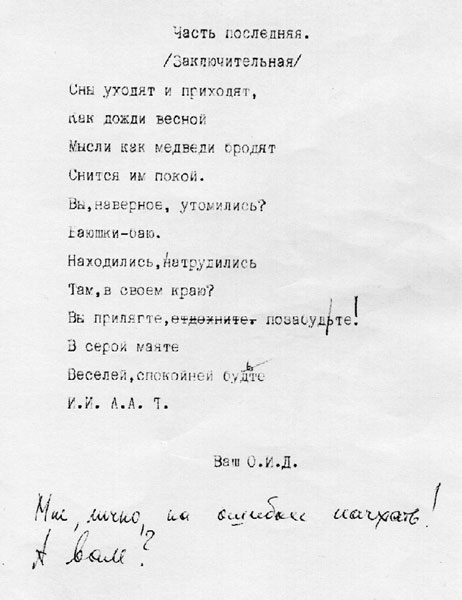 Часть последняя.
/Заключительная/
Сны уходят и приходят,
Как дожди весной
Мысли как медведи бродят
Снится им покой.
Вы,наверное, утомились?
Баюшки-баю.
Находились,натрудились
Там,в своем краю?
Вы прилягте,отдохните. позабудьте!
В серой маяте
Веселей,спокойней будьте
И.И. А.А. Т.
Ваш О.И.Д.
Мне, лично, на ошибки начхать!
А вам?